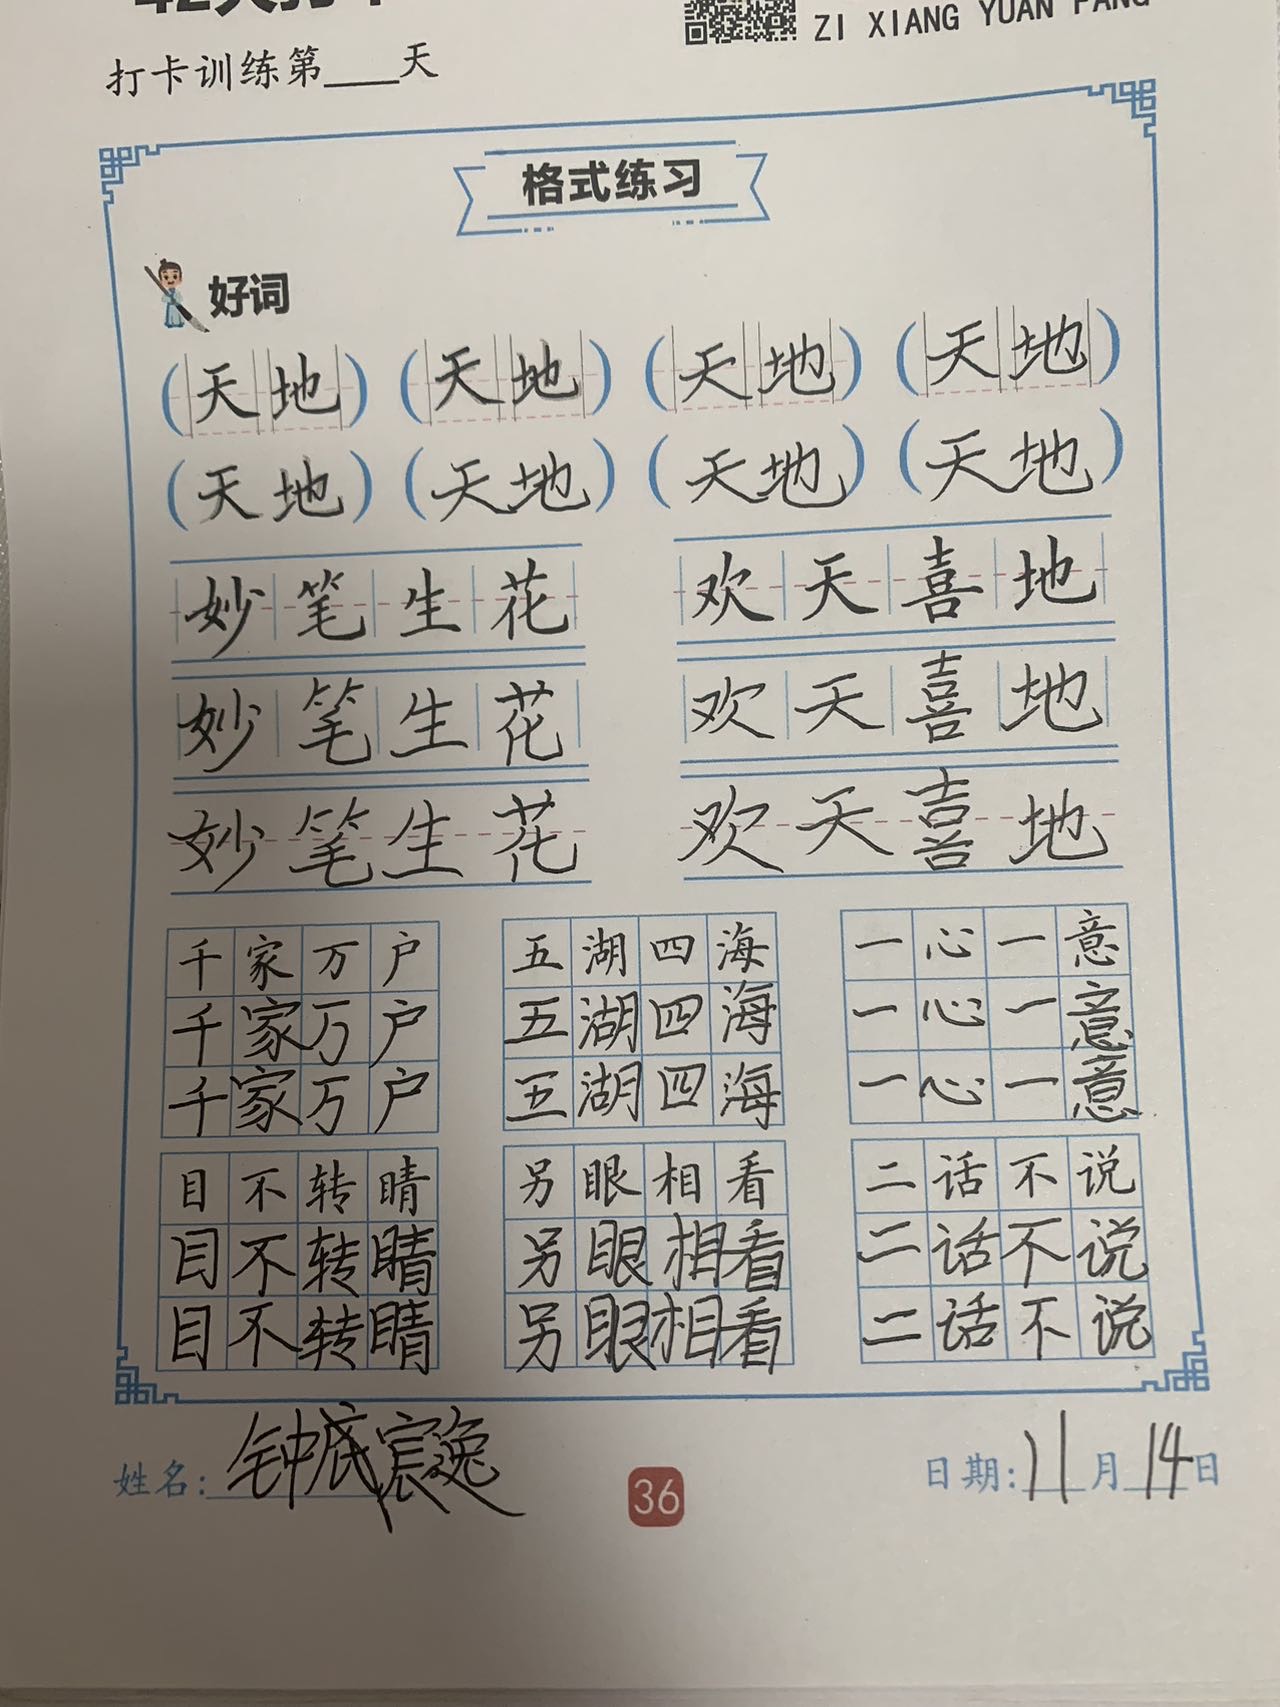 ZI XIANG YUAN FANG
打卡训练第____天
格式练习
好词
(天地) (天地) (天地) (天地)
(天地) (天地) (天地) (天地)
妙笔生花 欢天喜地
妙笔生花 欢天喜地
妙笔生花 欢天喜地
千家万户 五湖四海 一心一意
千家万户 五湖四海 一心一意
千家万户 五湖四海 一心一意
目不转睛 另眼相看 二话不说
目不转睛 另眼相看 二话不说
目不转睛 另眼相看 二话不说
姓名: 日期: 11月14日
36